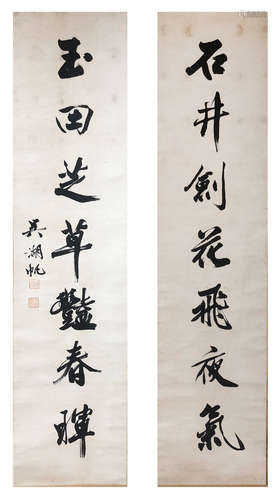 石井劍花飛夜氣
玉田芝草豔春暉
吳湖帆